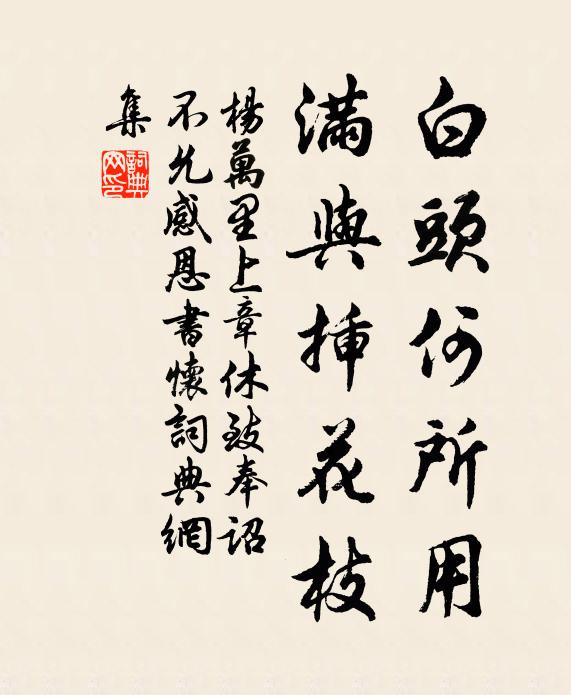 白頭何所用
滿與插花枝
楊萬里上章休致奉詔
不允感恩書懷詞典網
集
詞典
网印